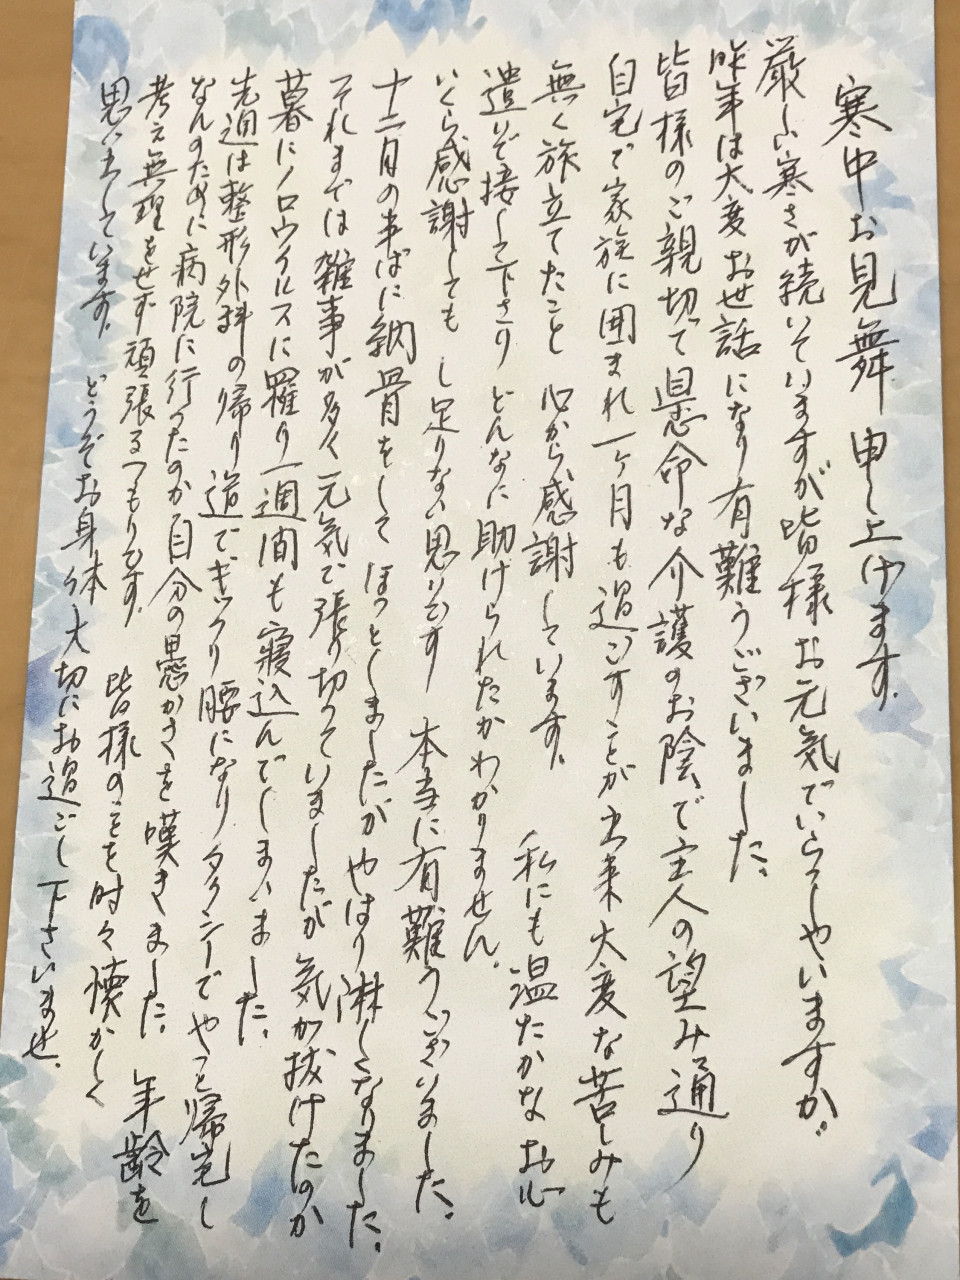 寒中お見舞申し上げます。
厳しい寒さが続いていますが皆様お元気でいらっしゃいますか。
昨年は大変お世話になり有難うございました。
皆様のご親切で懸命な介護のお陰で主人の望み通り
自宅で家族に囲まれ一ヶ月も過ごすことが出来大変な苦しみも
無く旅立てたこと 心から感謝しています。 私にも温たかなお心
遣いで接して下さり どんなに助けられたかわかりません。
いくら感謝しても し足りない思いです 本当に有難うございました。
十二月の半ばに納骨をして ほっとしましたが やはり淋しくなりました。
それまでは雑事が多く元気で張り切っていましたが 気が抜けたのか
暮にノロウイルスに罹り一週間も寝込んでしまいました。
先週は整形外科の帰り道でギックリ腰になりタクシーでやっと帰宅し
なんのために病院に行ったのか自分の愚かさを嘆きました。 年齢を
考え無理をせず頑張るつもりです。 皆様のことを時々懐かしく
思い出しています。 どうぞお身体大切にお過ごし下さいませ。